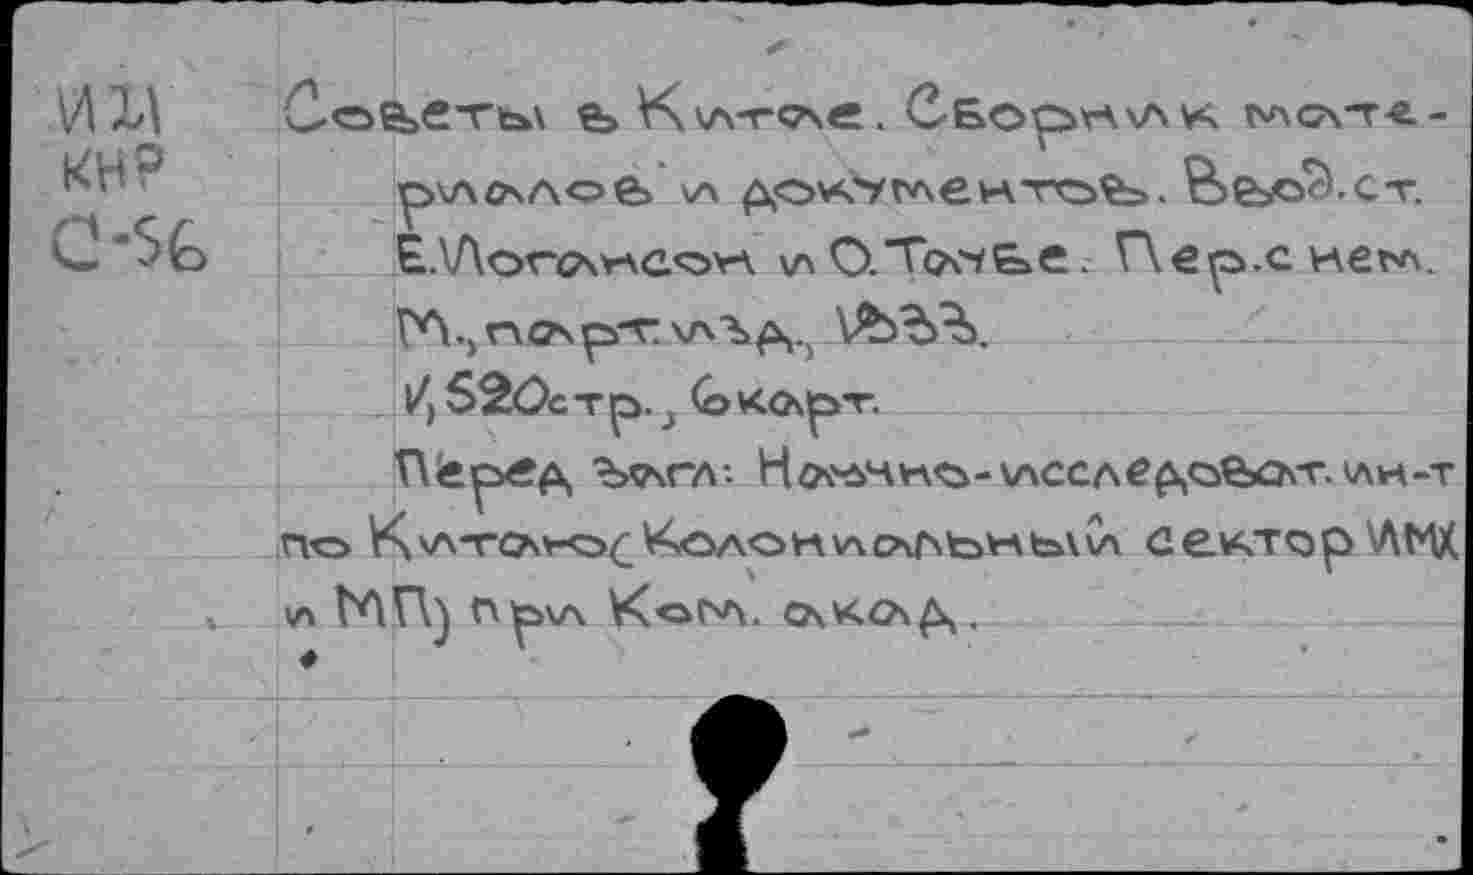 И21 Советы в Китае. Сборник мате-
КНР риалов и документов. Ввод.ст.
С-56 Е.Иогансон и О.Таубе. Пер.с нем.
М., парт.изд., 1933.
V, 520стр., 6карт.
Перед загл: Научно-исследоват. ин-т
по Китаю(Колониальный сектор ИМХ
и МП) при Ком. акад.